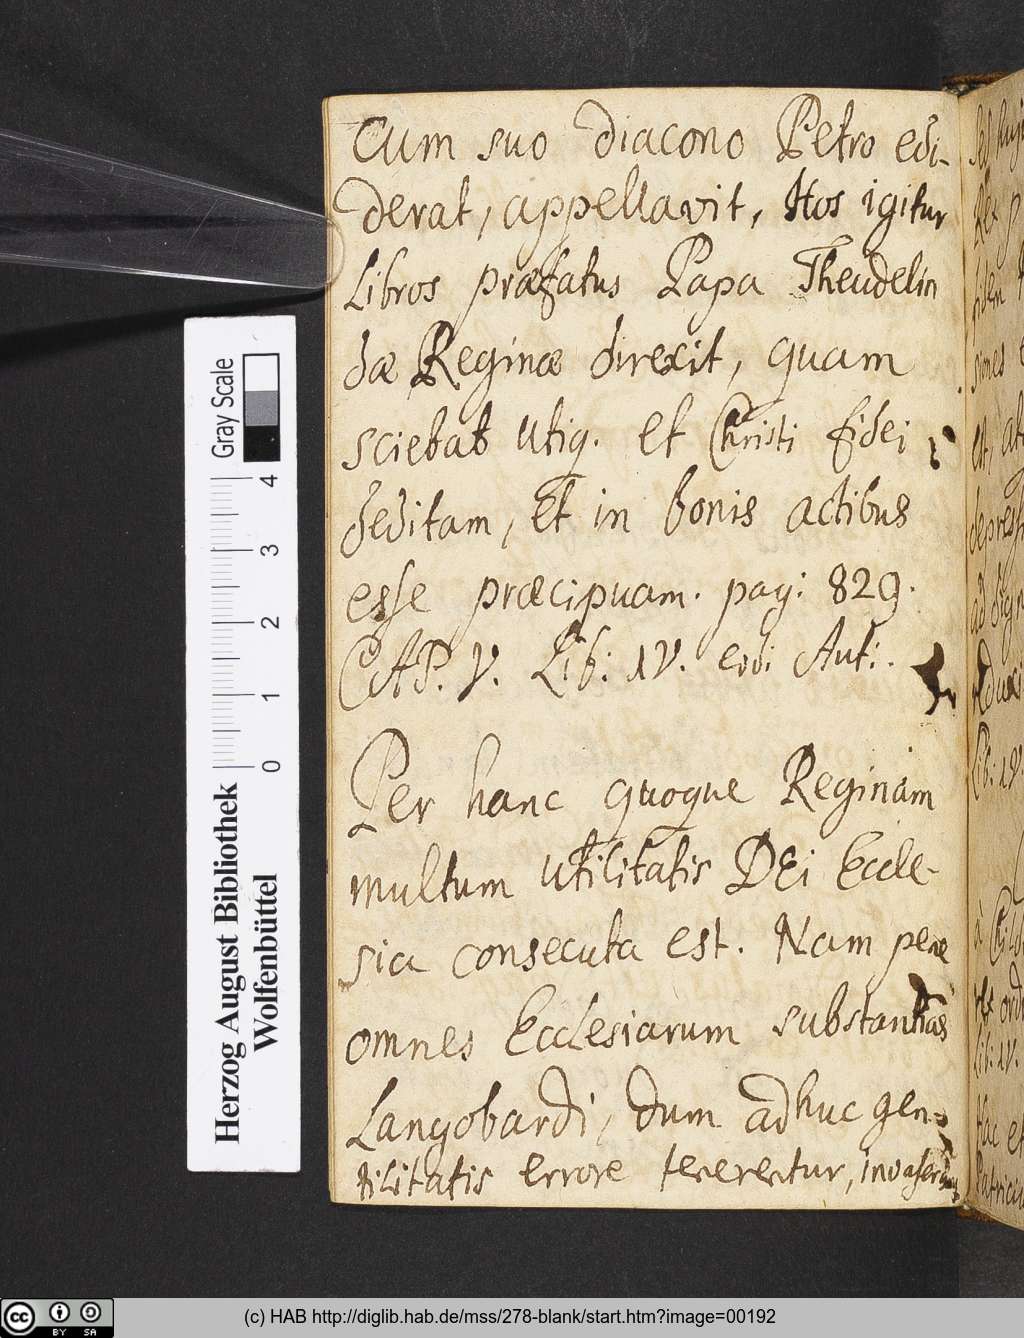 Cum suo diacono Petro edi-
derat, appellavit, Hos igitur
Libros præfatus Papa Theudelin
dæ Reginæ direxit, quam
sciebat utiq. et Christi fidei
deditam, Et in bonis actibus
esse præcipuam. pag: 829.
CAP. V. Lib: IV.
Per hanc quoque Reginam
multum utilitatis DEi Eccle-
sia consecuta est. Nam pene
omnes Ecclesiarum substantias
Langobardi, dum adhuc gen-
tilitatis errore tenerentur, invaserunt
Gray Scale
4
3
2
1
0
Herzog August Bibliothek
Wolfenbüttel
cc BY SA
(c) HAB http://diglib.hab.de/mss/278-blank/start.htm?image=00192